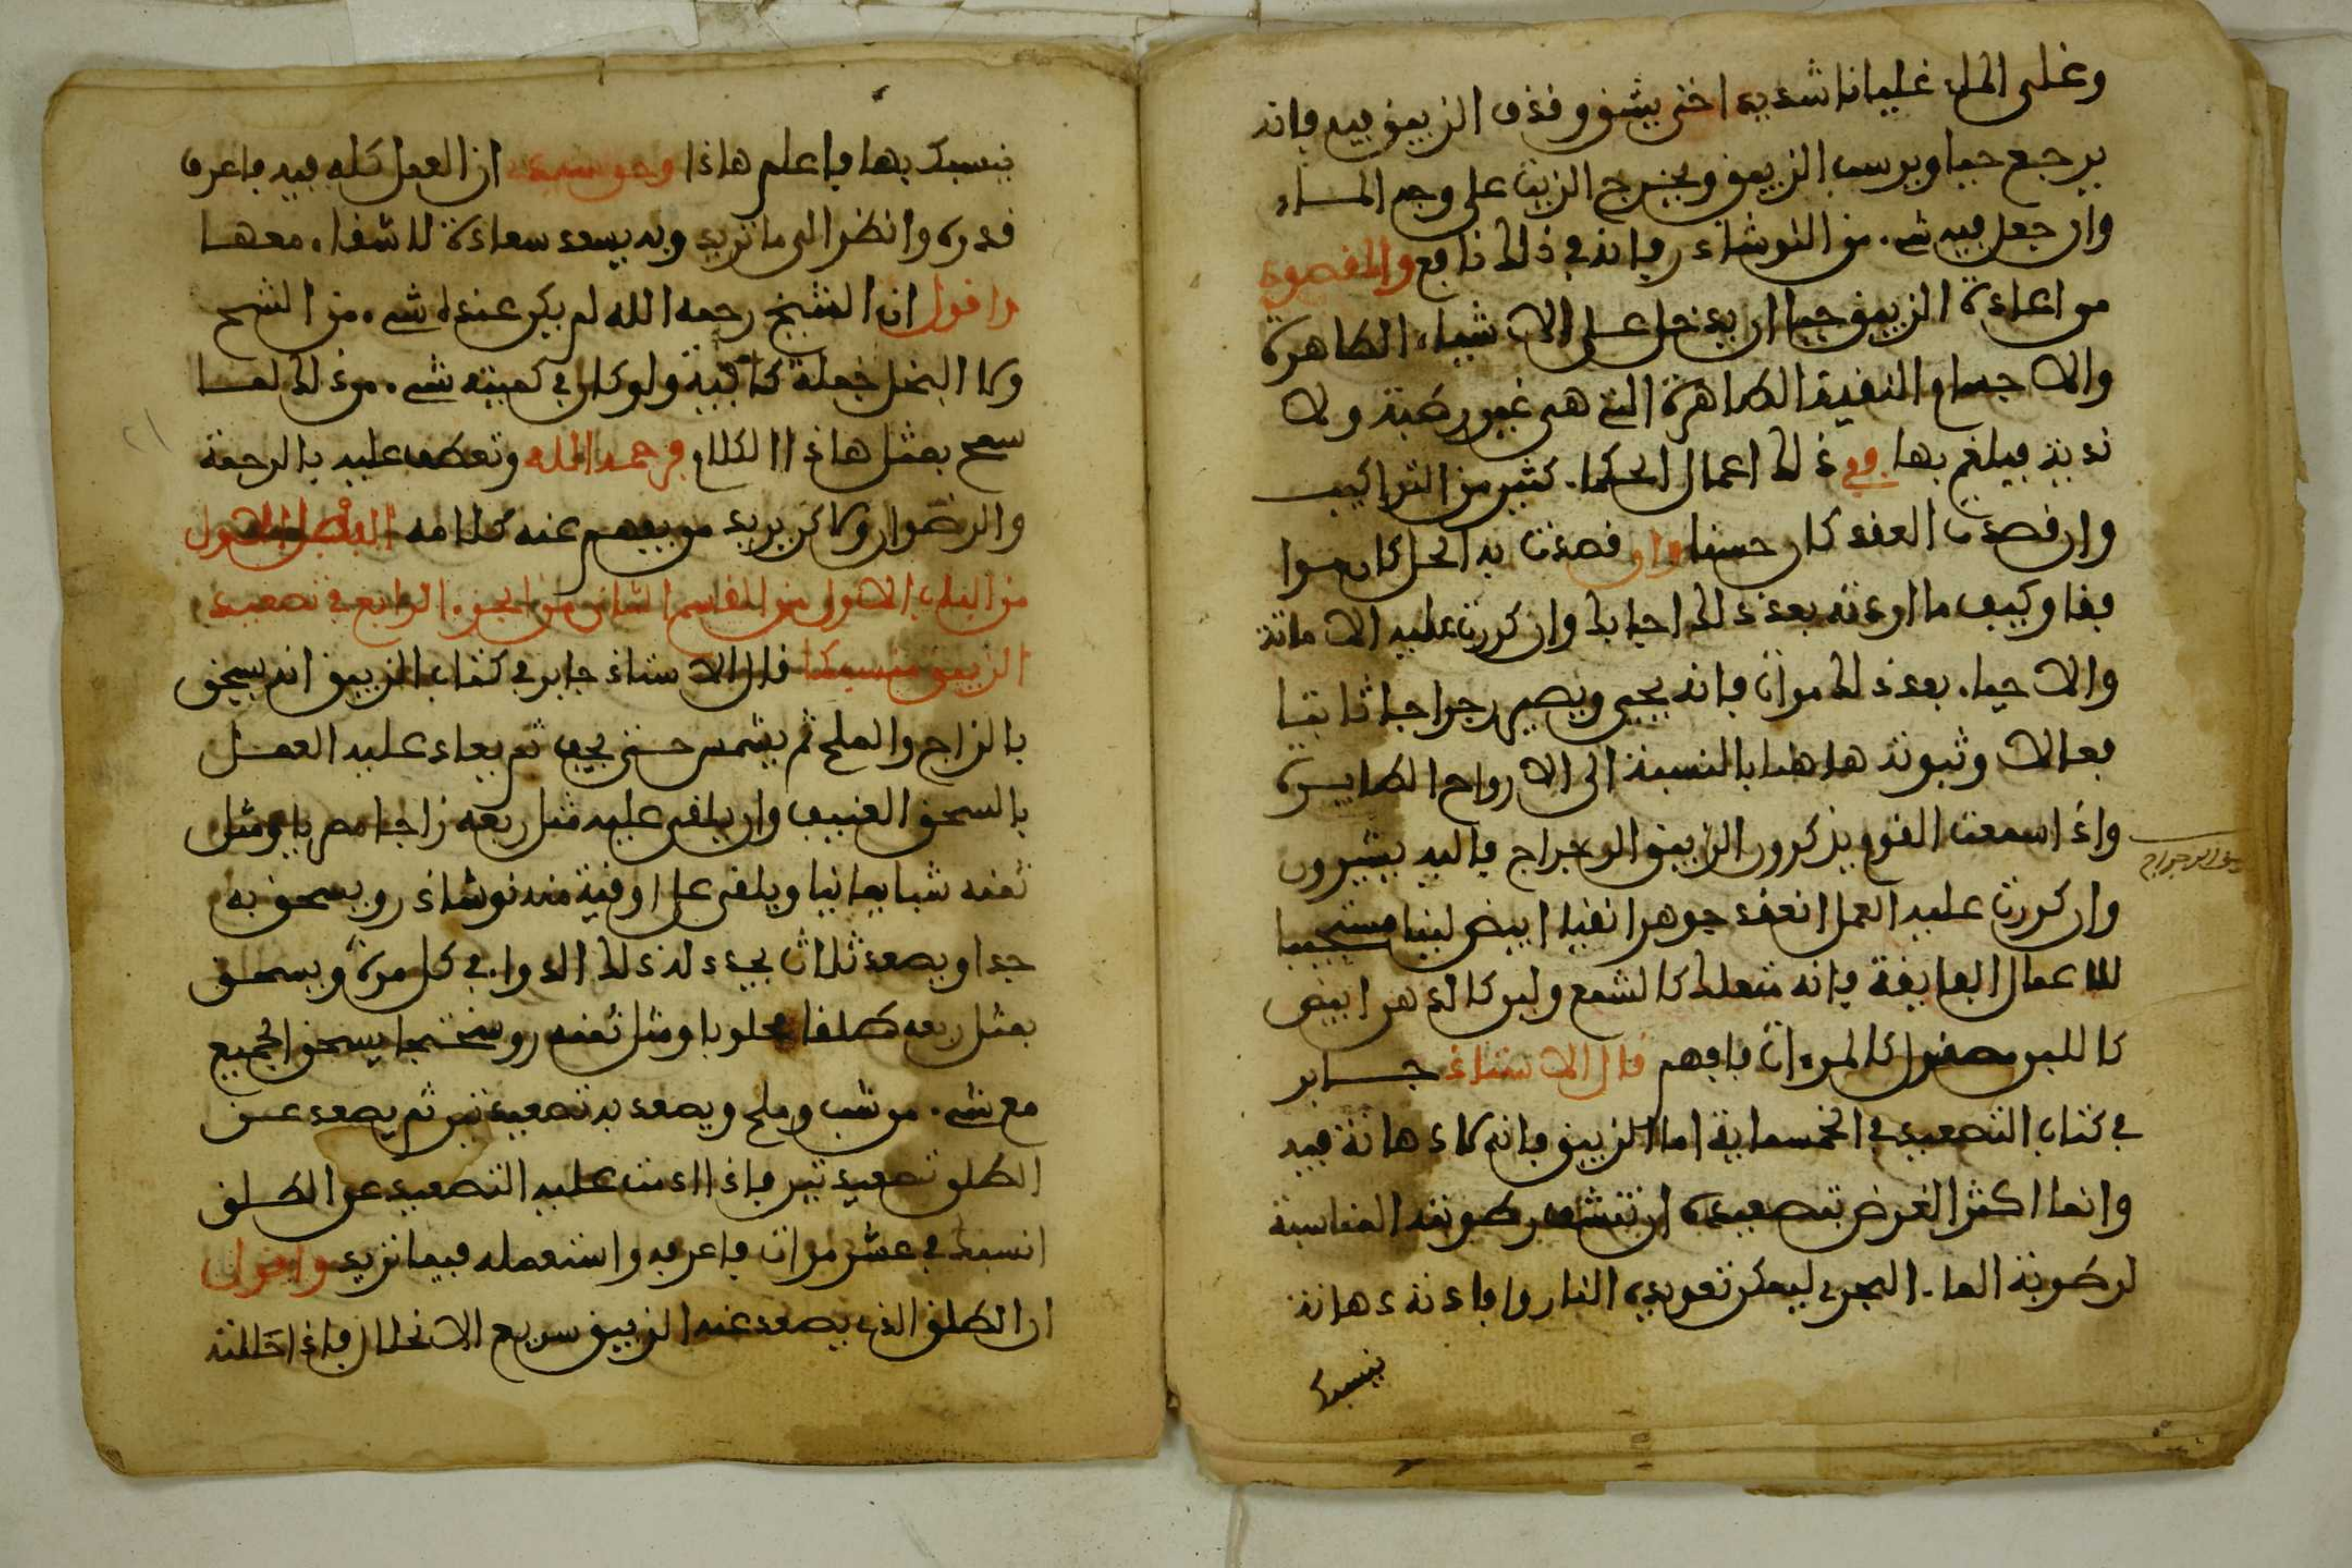 وغلى الماء غليانا شديدا حتى ينشف وقذف الزيبق فيه فانه
يرجع حيا ويرسب الزيبق ويخرج الزيت على وجه المـاء
وان جعل فيه شيء من النوشادر فانه في ذلك نافع والمقصود
من اعادة الزيبق حيا ان يدخل على الاشياء الطاهرة
والاجسام النقية الطاهرة التي هي غير رطبة ولا
ندية فيلغم بها وفي ذلك اعمال الحكماء كثير من التراكيب
وان قصدت العقد كان حسنا وان قصدت به الحل كان صوابا
فيما وكيف ما اردته بعد ذلك اجابك وان كررت عليه الاماتة
والاحياء بعد ذلك مرات فانه يحيى ويصير رجراجا ثابتا
فعالا وثبوته هاهنا بالنسبة الى الارواح الطايرة
واذا سمعت القوم يذكرون الزيبق الرجراج فاليه يشيرون
وان كررت عليه العمل انعقد جوهرا نقيا ابيض لينا مستجيبا
للاعمال الفايقة فانه متعلك كالشمع ولين كالدهن ابيض
كاللبن مصقول كالمرءات فافهم قال الاستاذ جـابر
في كتاب التصعيد في الخمسماية اما الزيبق فانه لا دهانة فيه
وانما اكثر الغرض بتصعيده ان تنشف رطوبته المناسبة
لرطوبة الماء البحري ليمكن تعويده النار وافادته دهانة
ينسبك
ينسبك بها فاعلم هاذا وحق سيدي ان العمل كله فيه فاعرف
قدره وانظر الى ما تريد وبه يسعد سعادة لا شقاء معها
واقول ان الشيخ رحمه الله لم يكن عنده شيء من الشح
ولا البخل جملة كافية ولو كان في كميته شيء من ذلك لما
سمح بمثل هاذا الكلام فرحمه الله وتعطف عليه بالرحمة
والرضوان ولاكن يريد من يفهم عنه كلامه الفصل الاول
من الباب الاول من القاسم الثاني من الجزء الرابع في تصعيد
الزيبق منسبكا قال الاستاذ جابر في كتاب الزيبق انه يسحق
بالزاج والملح ثم يشمس حتى يجف ثم يعاد عليه العمـل
بالسحق العنيف وان يلقى عليه مثل ربعه زاجا مصريا ومثل
ثمنه شبا يمانيا ويلقى على اوقية منه نوشاذر ويسحق به
جدا ويصعد ثلاث يجدد له ذلك الدواء في كل مرة ويسحق
بمثل ربعه طلقا محلوبا ومثل ثمنه روسختجا يسحق الجميع
مع شيء من شب وملح ويصعد به تصعيدتين ثم يصعد عـن
الطلق تصعيدتين فاذا ادمت عليه التصعيد عن الطلـق
انسبك في عشر مرات فاعرفه واستعمله فيما تريد واقول
ان الطلق الذي يصعد عنه الزيبق سريع الانحلال فاذا احللته